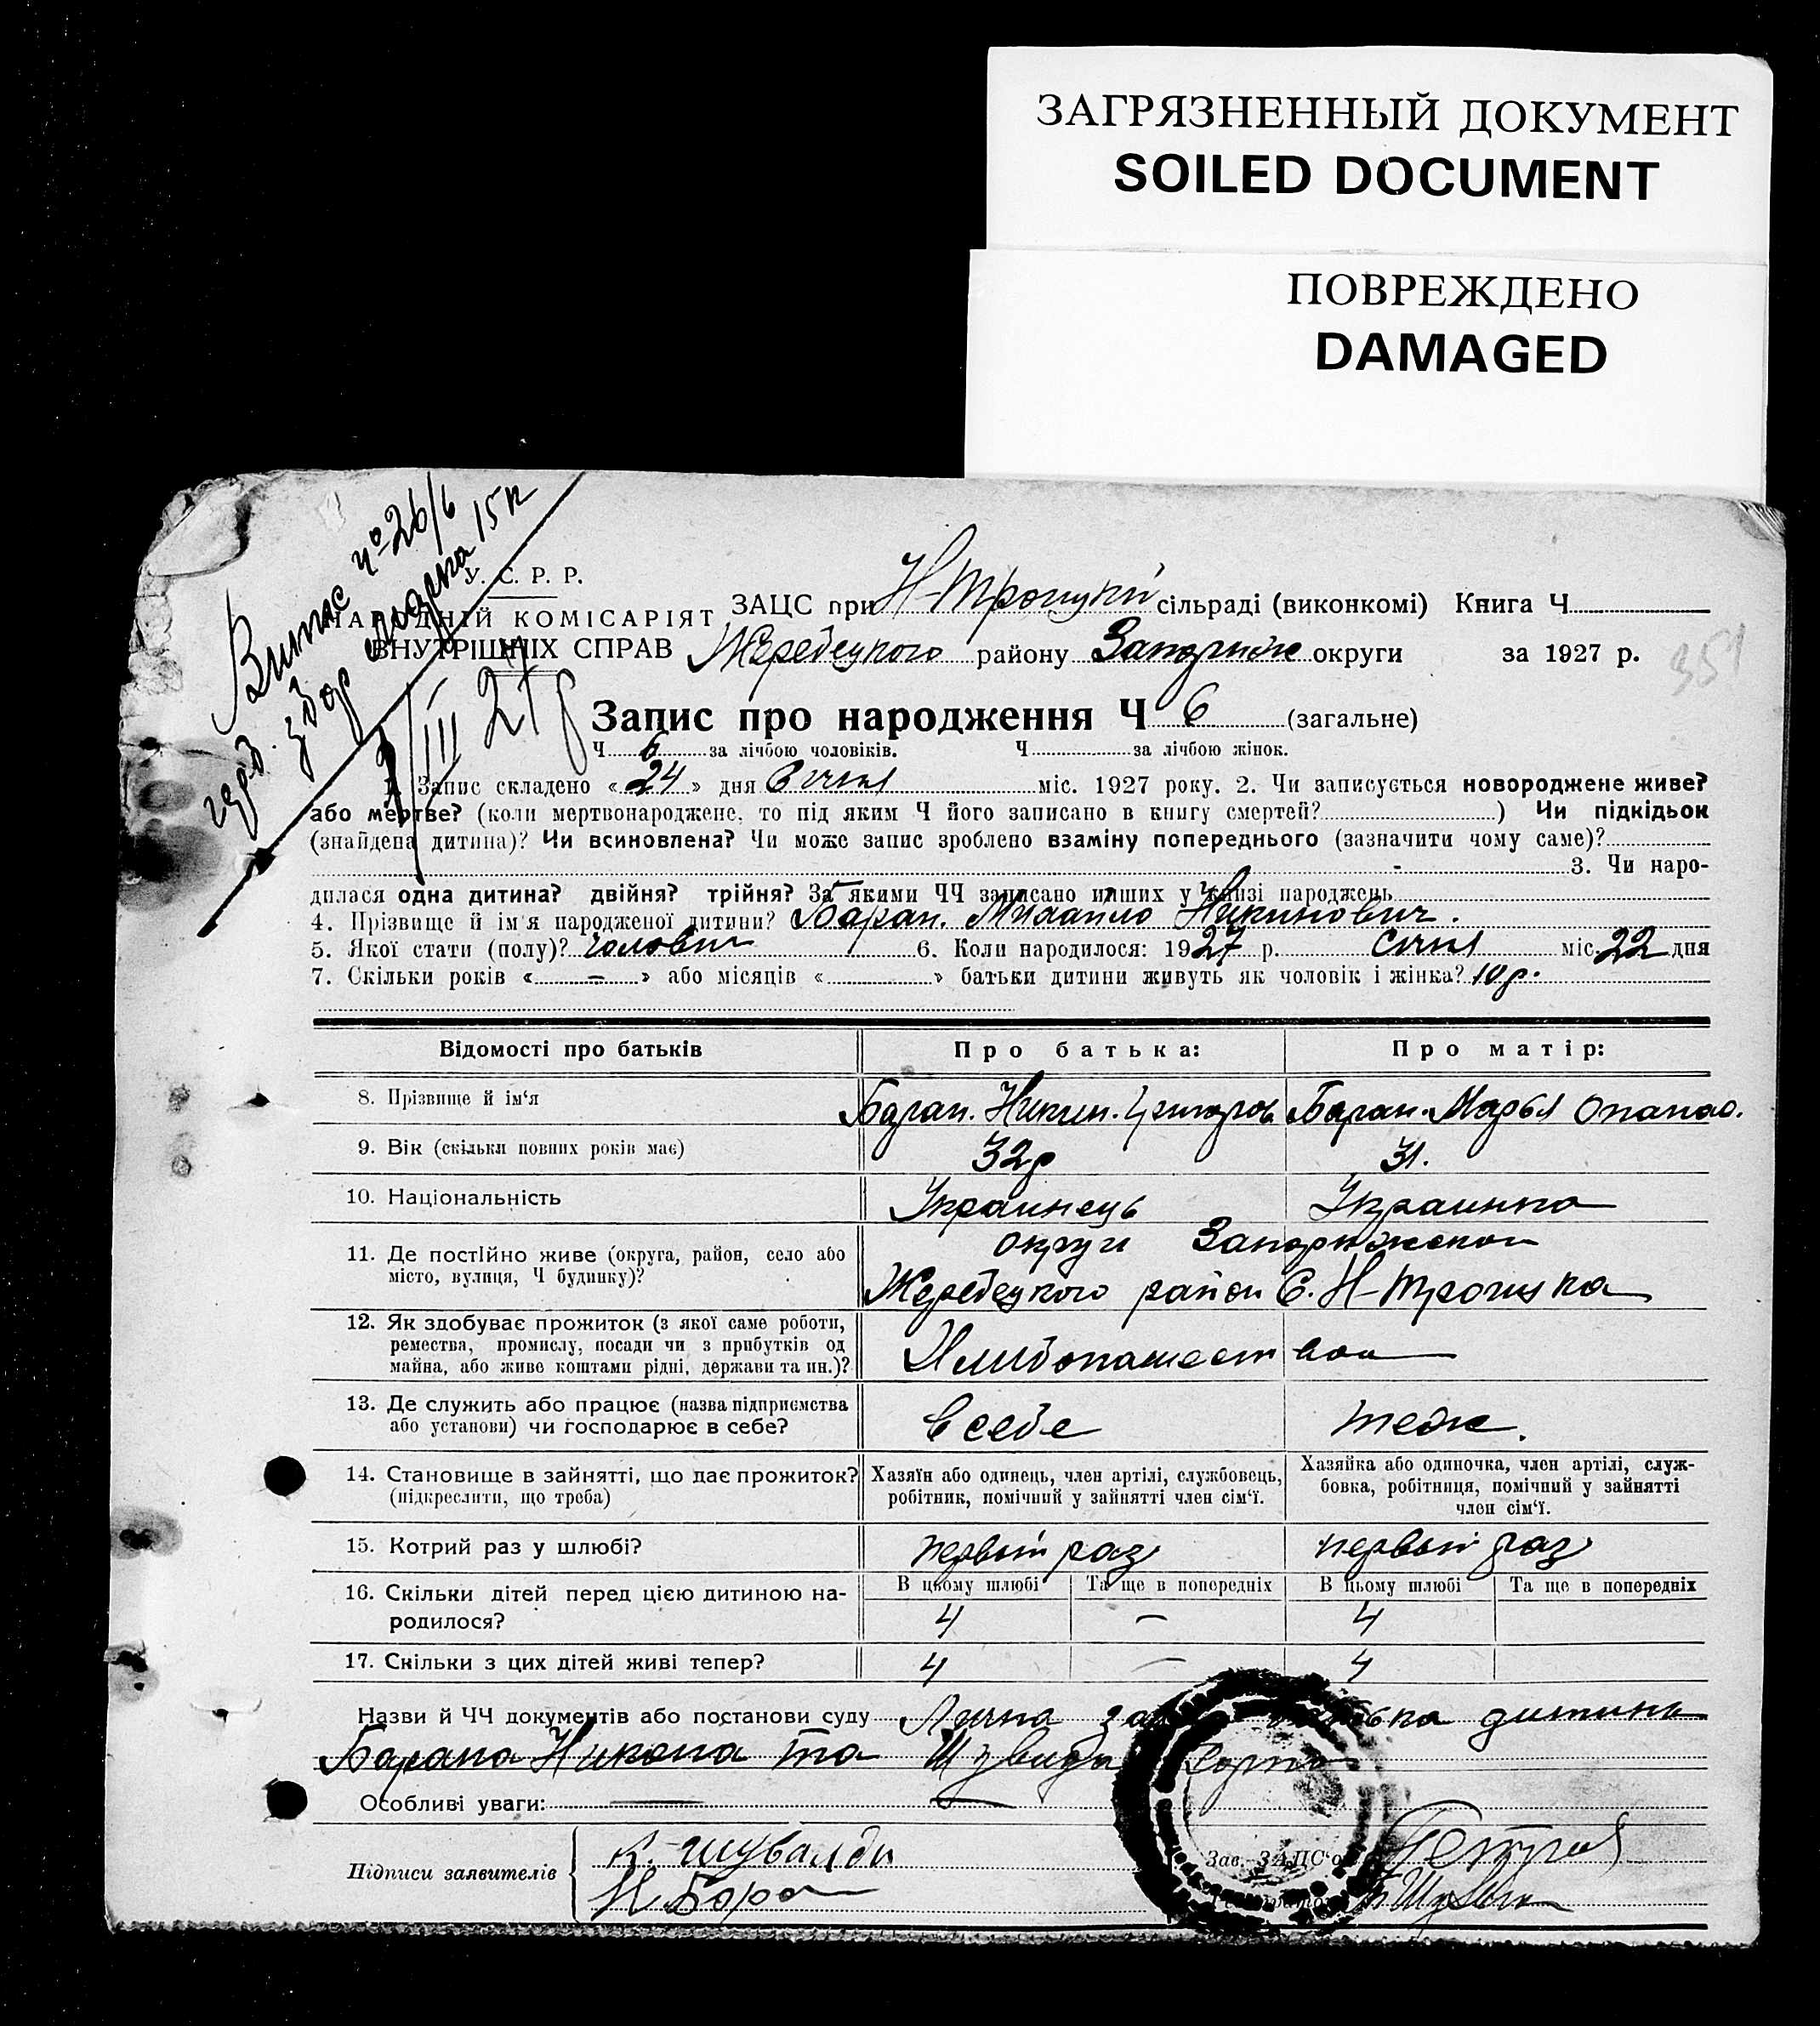 ЗАГРЯЗНЕННЫЙ ДОКУМЕНТ
SOILED DOCUMENT
ПОВРЕЖДЕНО
DAMAGED
Витяг ч° 26/6
15 к
III 27 р
У. С. Р. Р.
НАРОДНІЙ КОМІСАРІЯТ
ВНУТРІШНІХ СПРАВ
351
ЗАЦС при Н-Троицкій сільраді (виконкомі) Книга Ч
Жеребецкого району Запоріж округи за 1927 р.
Запис про народження Ч 6 (загальне)
Ч 6 за лічбою чоловіків. Ч за лічбою жінок.
1. Запис складено « 24 » дня Січня міс. 1927 року. 2. Чи записується новороджене живе?
або мертве? (коли мертвонароджене, то під яким Ч його записано в книгу смертей? ) Чи підкідьок
(знайдена дитина)? Чи всиновлена? Чи може запис зроблено взаміну попереднього (зазначити чому саме)?
- 3. Чи наро-
дилася одна дитина? двійня? трійня? За якими ЧЧ записано инших у книзі народжень
4. Прізвище й ім'я народженої дитини? Баран. Михайло Никинович.
5. Якої стати (полу)? чоловіч 6. Коли народилося: 1927 р. Січня міс. 22 дня
7. Скільки років « — » або місяців « » батьки дитини живуть як чоловік і жінка? 10 р.
Відомості про батьків Про батька: Про матір:
8. Прізвище й ім'я Баран. Никин. Григоров Баран. Марья Опанас.
9. Вік (скільки повних років має) 32 р 31.
10. Національність Украинець Украинка
11. Де постІйно живе (округа, район, село або округи Запорижскои
місто, вулиця, Ч будинку)? Жеребецкого район С. Н-Троицка
12. Як здобуває прожиток (з якої саме роботи,
ремества, промислу, посади чи з прибутків од
майна, або живе коштами рідні, держави та ин.)? Хлибопашеством
13. Де служить або працює (назва підприємства
або установи) чи господарює в себе? в себе теж.
14. Становище в зайнятті, що дає прожиток? Хазяїн або одинець, член артілі, службовець, Хазяйка або одиночка, член артілі, служ-
(підкреслити, що треба) робітник, помічний у зайнятті член сім'ї. бовка, робітниця, помічний у зайнятті
член сім'ї.
15. Котрий раз у шлюбі? первый раз первый раз
16. Скільки дітей перед цією дитиною на- В цьому шлюбі Та ще в попередніх В цьому шлюбі Та ще в попередніх
родилося? 4 — 4
17. Скільки з цих дітей живі тепер? 4 — 4
Назви й ЧЧ документів або постанови суду Лична дитини
Барана Никона та
Особливі уваги: —
Підписи заявителів К. Шувалди
Н Баран
Зав. ЗАЦС'ом Петров